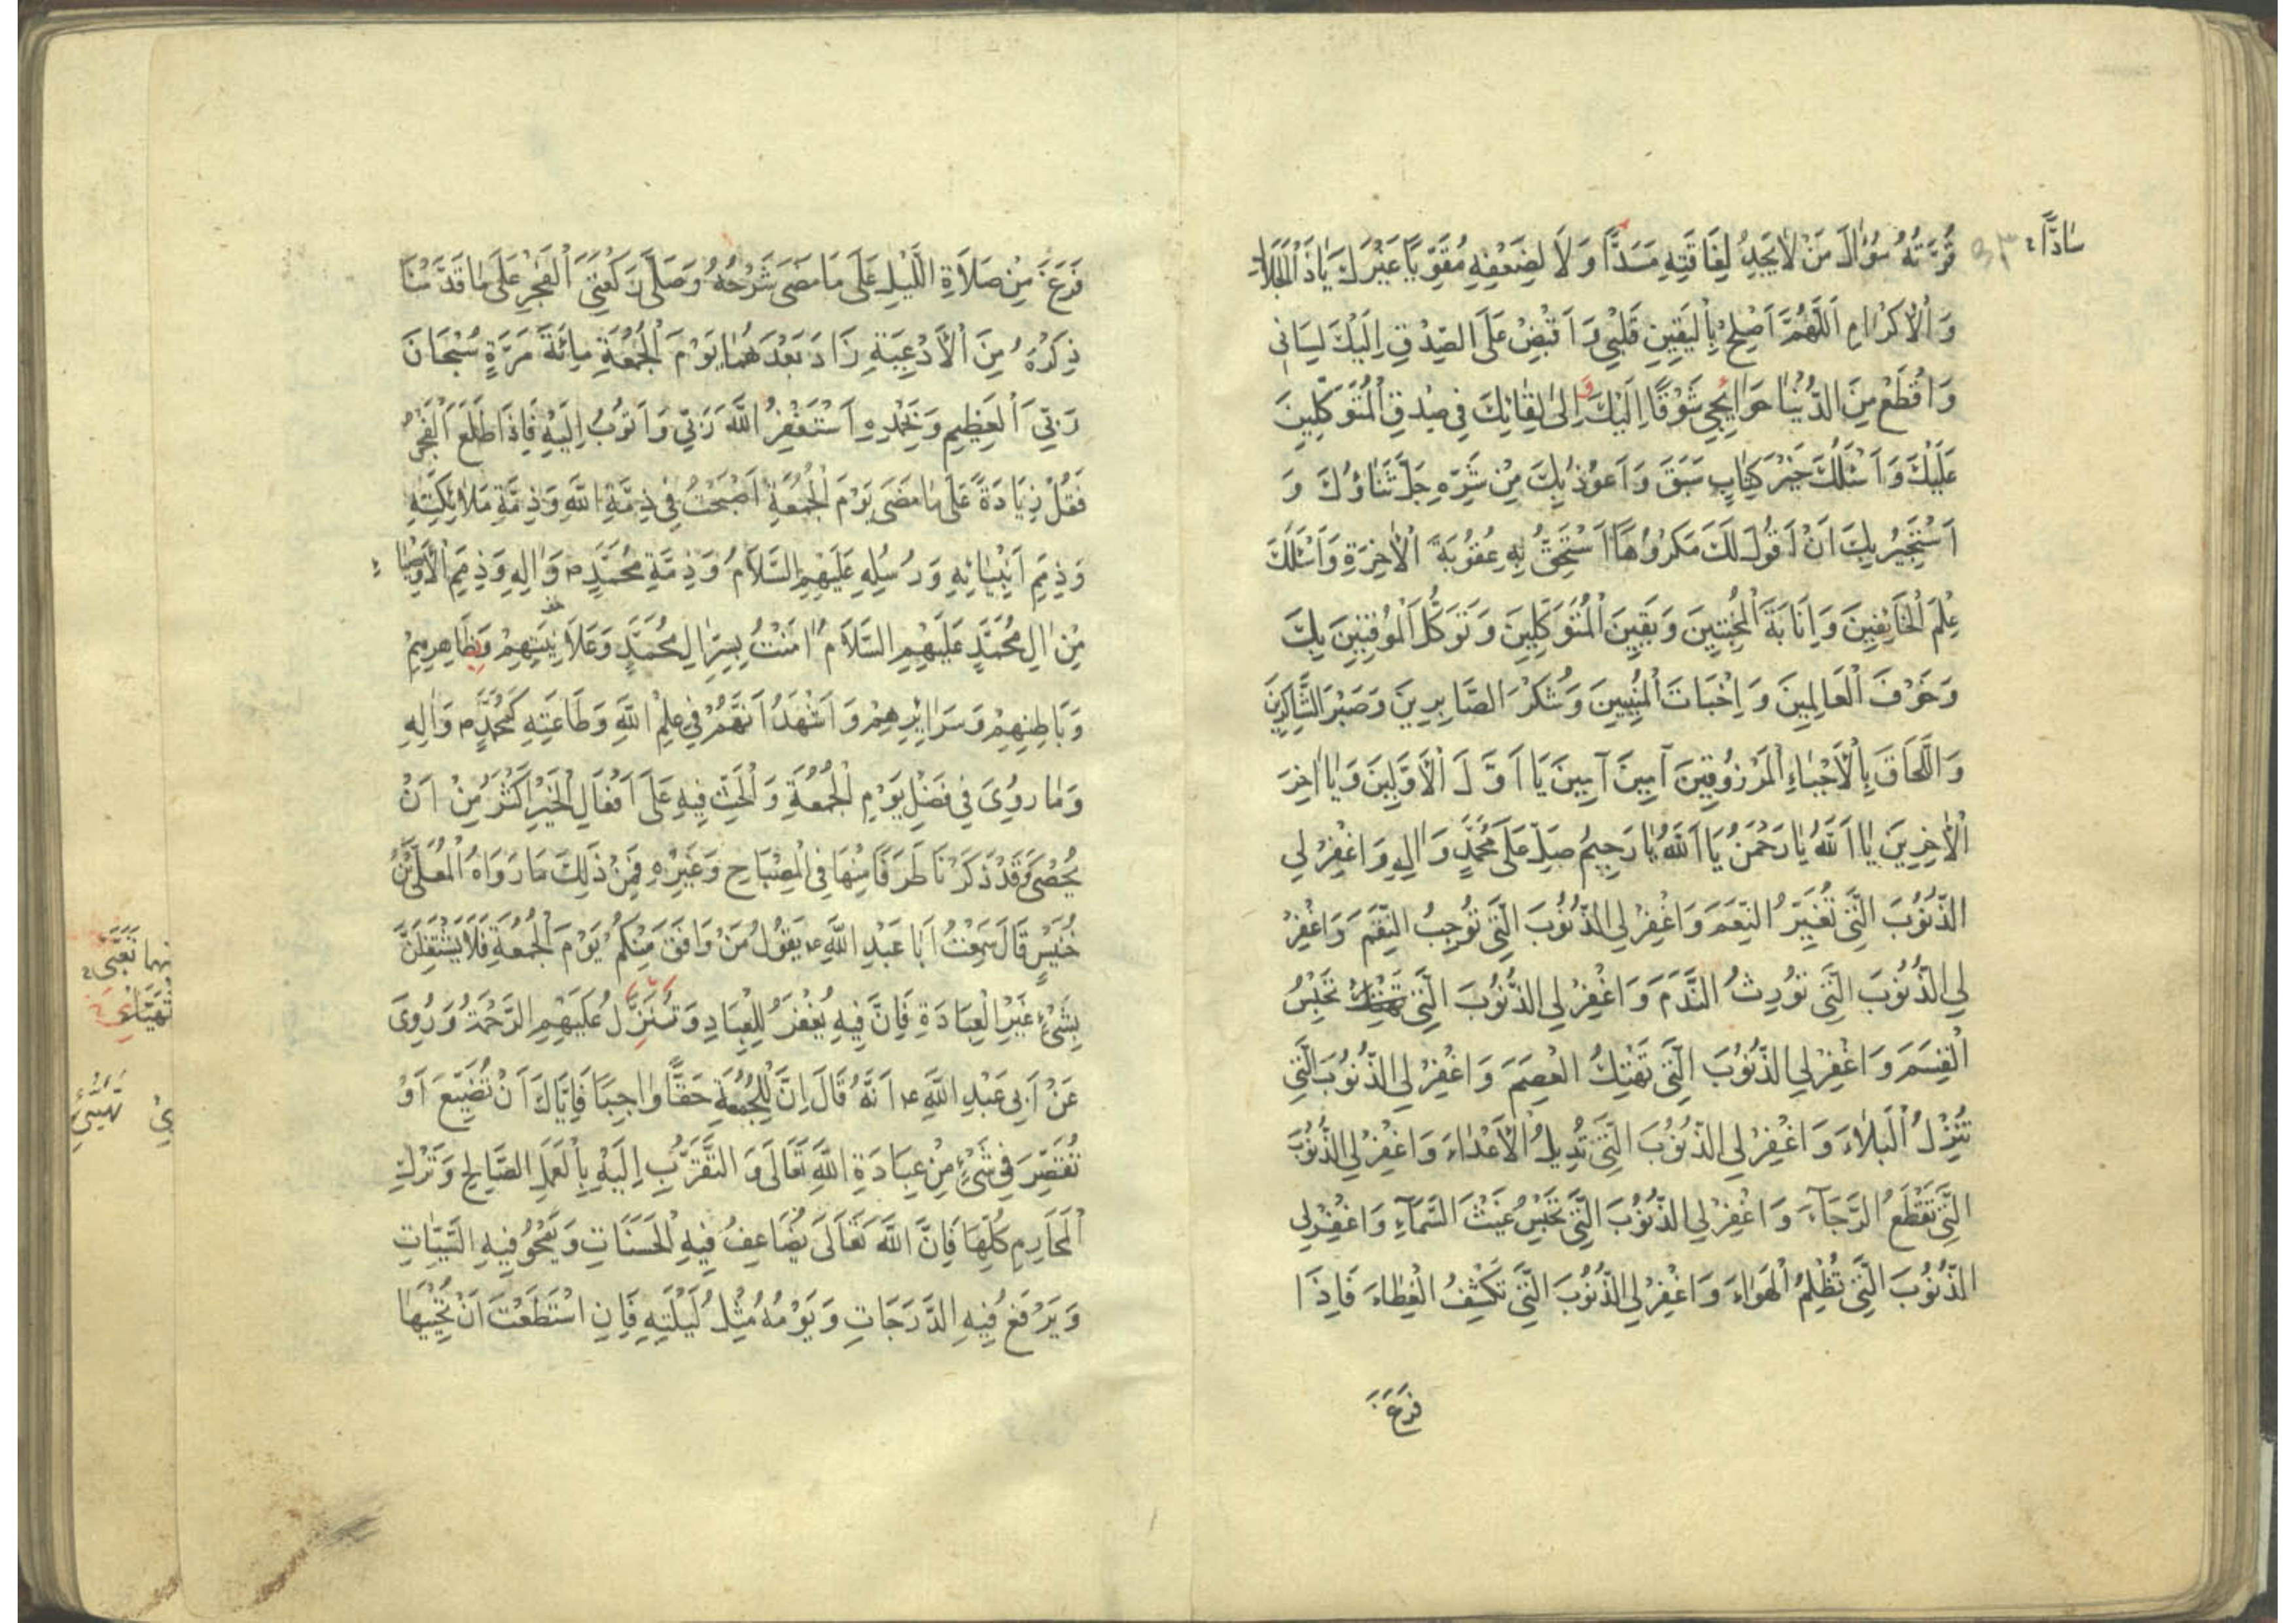 قُوَّتُهُ سُؤَالَ مَنْ لَا يَجِدُ لِفَاقَتِهِ مَسَدًّا وَلَا لِضَعْفِهِ مُقَوِّيًا غَيْرَكَ يَا ذَا الْجَلَالِ
سَادًّا
وَالْإِكْرَامِ اَللّٰهُمَّ اَصْلِحْ بِالْيَقِينِ قَلْبِي وَاقْبِضْ عَلَى الصِّدْقِ اِلَيْكَ لِسَانِي
وَاقْطَعْ مِنَ الدُّنْيَا حَوَائِجِي شَوْقًا اِلَيْكَ وَ اِلىٰ لِقَائِكَ فِي صِدْقِ الْمُتَوَكِّلِينَ
عَلَيْكَ وَاَسْئَلُكَ خَيْرَ كِتَابٍ سَبَقَ وَاَعُوذُ بِكَ مِنْ شَرِّهِ جَلَّ ثَنَاؤُكَ وَ
اَسْتَجِيرُ بِكَ اَنْ اَقُولَ لَكَ مَكْرُوهًا اَسْتَحِقُّ بِهِ عُقُوبَةَ الْاٰخِرَةِ وَاَسْئَلُكَ
عِلْمَ الْخَائِفِينَ وَاِنَابَةَ الْمُخْبِتِينَ وَيَقِينَ الْمُتَوَكِّلِينَ وَتَوَكُّلَ الْمُوقِنِينَ بِكَ
وَخَوْفَ الْعَالِمِينَ وَاِخْبَاتَ الْمُنِيبِينَ وَشُكْرَ الصَّابِرِينَ وَصَبْرَ الشَّاكِرِينَ
وَاللَّحَاقَ بِالْأَحْيَاءِ الْمَرْزُوقِينَ آمِينَ آمِينَ يَا اَوَّلَ الْأَوَّلِينَ وَيَا اٰخِرَ
الْاٰخِرِينَ يَا اَللّٰهُ يَا رَحْمَنُ يَا اَللّٰهُ يَا رَحِيمُ صَلِّ عَلَى مُحَمَّدٍ وَاٰلِهِ وَاغْفِرْ لِي
الذُّنُوبَ الَّتِي تُغَيِّرُ النِّعَمَ وَاغْفِرْ لِي الذُّنُوبَ الَّتِي تُوجِبُ النِّقَمَ وَاغْفِرْ
لِي الذُّنُوبَ الَّتِي تُورِثُ النَّدَمَ وَاغْفِرْ لِي الذُّنُوبَ الَّتِي تَحْبِسُ
الْقِسَمَ وَاغْفِرْ لِي الذُّنُوبَ الَّتِي تَهْتِكُ الْعِصَمَ وَاغْفِرْ لِي الذُّنُوبَ الَّتِي
تُنْزِلُ الْبَلَاءَ وَاغْفِرْ لِي الذُّنُوبَ الَّتِي تُدِيلُ الْأَعْدَاءَ وَاغْفِرْ لِي الذُّنُوبَ
الَّتِي تَقْطَعُ الرَّجَآءَ وَاغْفِرْ لِي الذُّنُوبَ الَّتِي تَحْبِسُ غَيْثَ السَّمَآءِ وَاغْفِرْ لِي
الذُّنُوبَ الَّتِي تُظْلِمُ الْهَوَاءَ وَاغْفِرْ لِي الذُّنُوبَ الَّتِي تَكْشِفُ الْغِطَاءَ فَاِذَا
فَرَغَ
فَرَغَ مِنْ صَلَاةِ اللَّيْلِ عَلَى مَا مَضَى شَرْحُهُ وَصَلَّى رَكْعَتَيِ الْفَجْرِ عَلَى مَا قَدَّمْنَا
ذِكْرَهُ مِنَ الْأَدْعِيَةِ زَادَ بَعْدَهُمَا يَوْمَ الْجُمُعَةِ مِائَةَ مَرَّةٍ سُبْحَانَ
رَبِّيَ الْعَظِيمِ وَبِحَمْدِهِ اَسْتَغْفِرُ اللّٰهَ رَبِّي وَاَتُوبُ اِلَيْهِ فَاِذَا طَلَعَ الْفَجْرُ
فَقُلْ زِيَادَةً عَلَى مَا مَضَى يَوْمَ الْجُمُعَةِ اَصْبَحْتُ فِي ذِمَّةِ اللّٰهِ وَذِمَّةِ مَلَائِكَتِهِ
وَذِمَمِ اَنْبِيَائِهِ وَرُسُلِهِ عَلَيْهِمُ السَّلَامُ وَذِمَّةِ مُحَمَّدٍ ص وَاٰلِهِ وَذِمَمِ الْأَوْصِيَاءِ
مِنْ اٰلِ مُحَمَّدٍ عَلَيْهِمُ السَّلَامُ اٰمَنْتُ بِسِرِّ اٰلِ مُحَمَّدٍ وَعَلَانِيَتِهِمْ وَظَاهِرِهِمْ
وَبَاطِنِهِمْ وَسَرَائِرِهِمْ وَاَشْهَدُ اَنَّهُمْ فِي عِلْمِ اللّٰهِ وَطَاعَتِهِ كَمُحَمَّدٍ ص وَاٰلِهِ
وَمَا رُوِيَ فِي فَضْلِ يَوْمِ الْجُمُعَةِ وَالْحَثِّ فِيهِ عَلَى اَفْعَالِ الْخَيْرِ اَكْثَرُ مِنْ اَنْ
يُحْصَى وَقَدْ ذَكَرْنَا طَرَفًا مِنْهَا فِي الْمِصْبَاحِ وَغَيْرِهِ فَمِنْ ذَلِكَ مَا رَوَاهُ الْمُعَلَّى بْنُ
خُنَيْسٍ قَالَ سَمِعْتُ اَبَا عَبْدِ اللّٰهِ ع يَقُولُ مَنْ وَافَقَ مِنْكُمْ يَوْمَ الْجُمُعَةِ فَلَا يَشْتَغِلَنَّ
بِشَيْءٍ غَيْرِ الْعِبَادَةِ فَاِنَّ فِيهِ يُغْفَرُ لِلْعِبَادِ وَتُنْزَلُ عَلَيْهِمُ الرَّحْمَةُ وَرُوِيَ
عَنْ اَبِي عَبْدِ اللّٰهِ ع اَنَّهُ قَالَ اِنَّ لِلْجُمُعَةِ حَقًّا وَاجِبًا فَاِيَّاكَ اَنْ تُضَيِّعَ اَوْ
تُقَصِّرَ فِي شَيْءٍ مِنْ عِبَادَةِ اللّٰهِ تَعَالَى وَالتَّقَرُّبِ اِلَيْهِ بِالْعَمَلِ الصَّالِحِ وَتَرْكِ
الْمَحَارِمِ كُلِّهَا فَاِنَّ اللّٰهَ تَعَالَى يُضَاعِفُ فِيهِ الْحَسَنَاتِ وَيَمْحُو فِيهِ السَّيِّئَاتِ
وَيَرْفَعُ فِيهِ الدَّرَجَاتِ وَيَوْمُهُ مِثْلُ لَيْلَتِهِ فَاِنِ اسْتَطَعْتَ اَنْ تُحْيِيَهَا